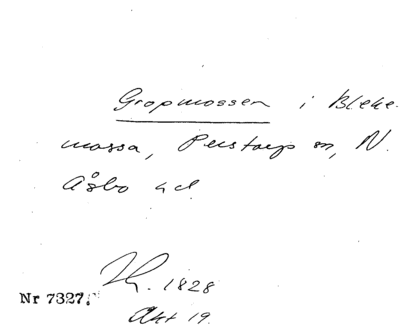 Gropmossen i Bleke-
mossa, Perstorp sn, N.
Åsbo hd.
1828
Nr 7327.
Akt 19.